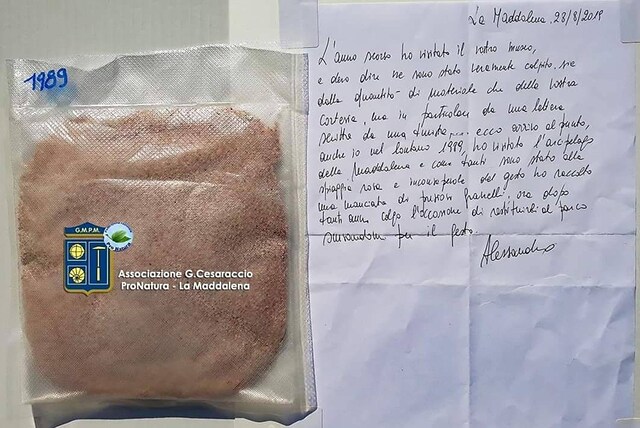 1989
G.M.P.M.
Pro Natura
Associazione G.Cesaraccio
ProNatura - La Maddalena
La Maddalena, 28/8/2019
L'anno scorso ho visitato il vostro museo,
e devo dire ne sono stato veramente colpito, sia
dalla quantità di materiale che della vostra
cortesia, ma in particolare da una lettera
scritta da una turista.... ecco arrivo al punto,
anche io nel lontano 1989, ho visitato l'arcipelago
della Maddalena e come tanti sono stato alla
spiaggia rosa e inconsapevole del gesto ho raccolto
una manciata di preziosi granelli, ora dopo
tanti anni colgo l'occasione di restituirle al parco
scusandomi per il gesto.
Alessandro